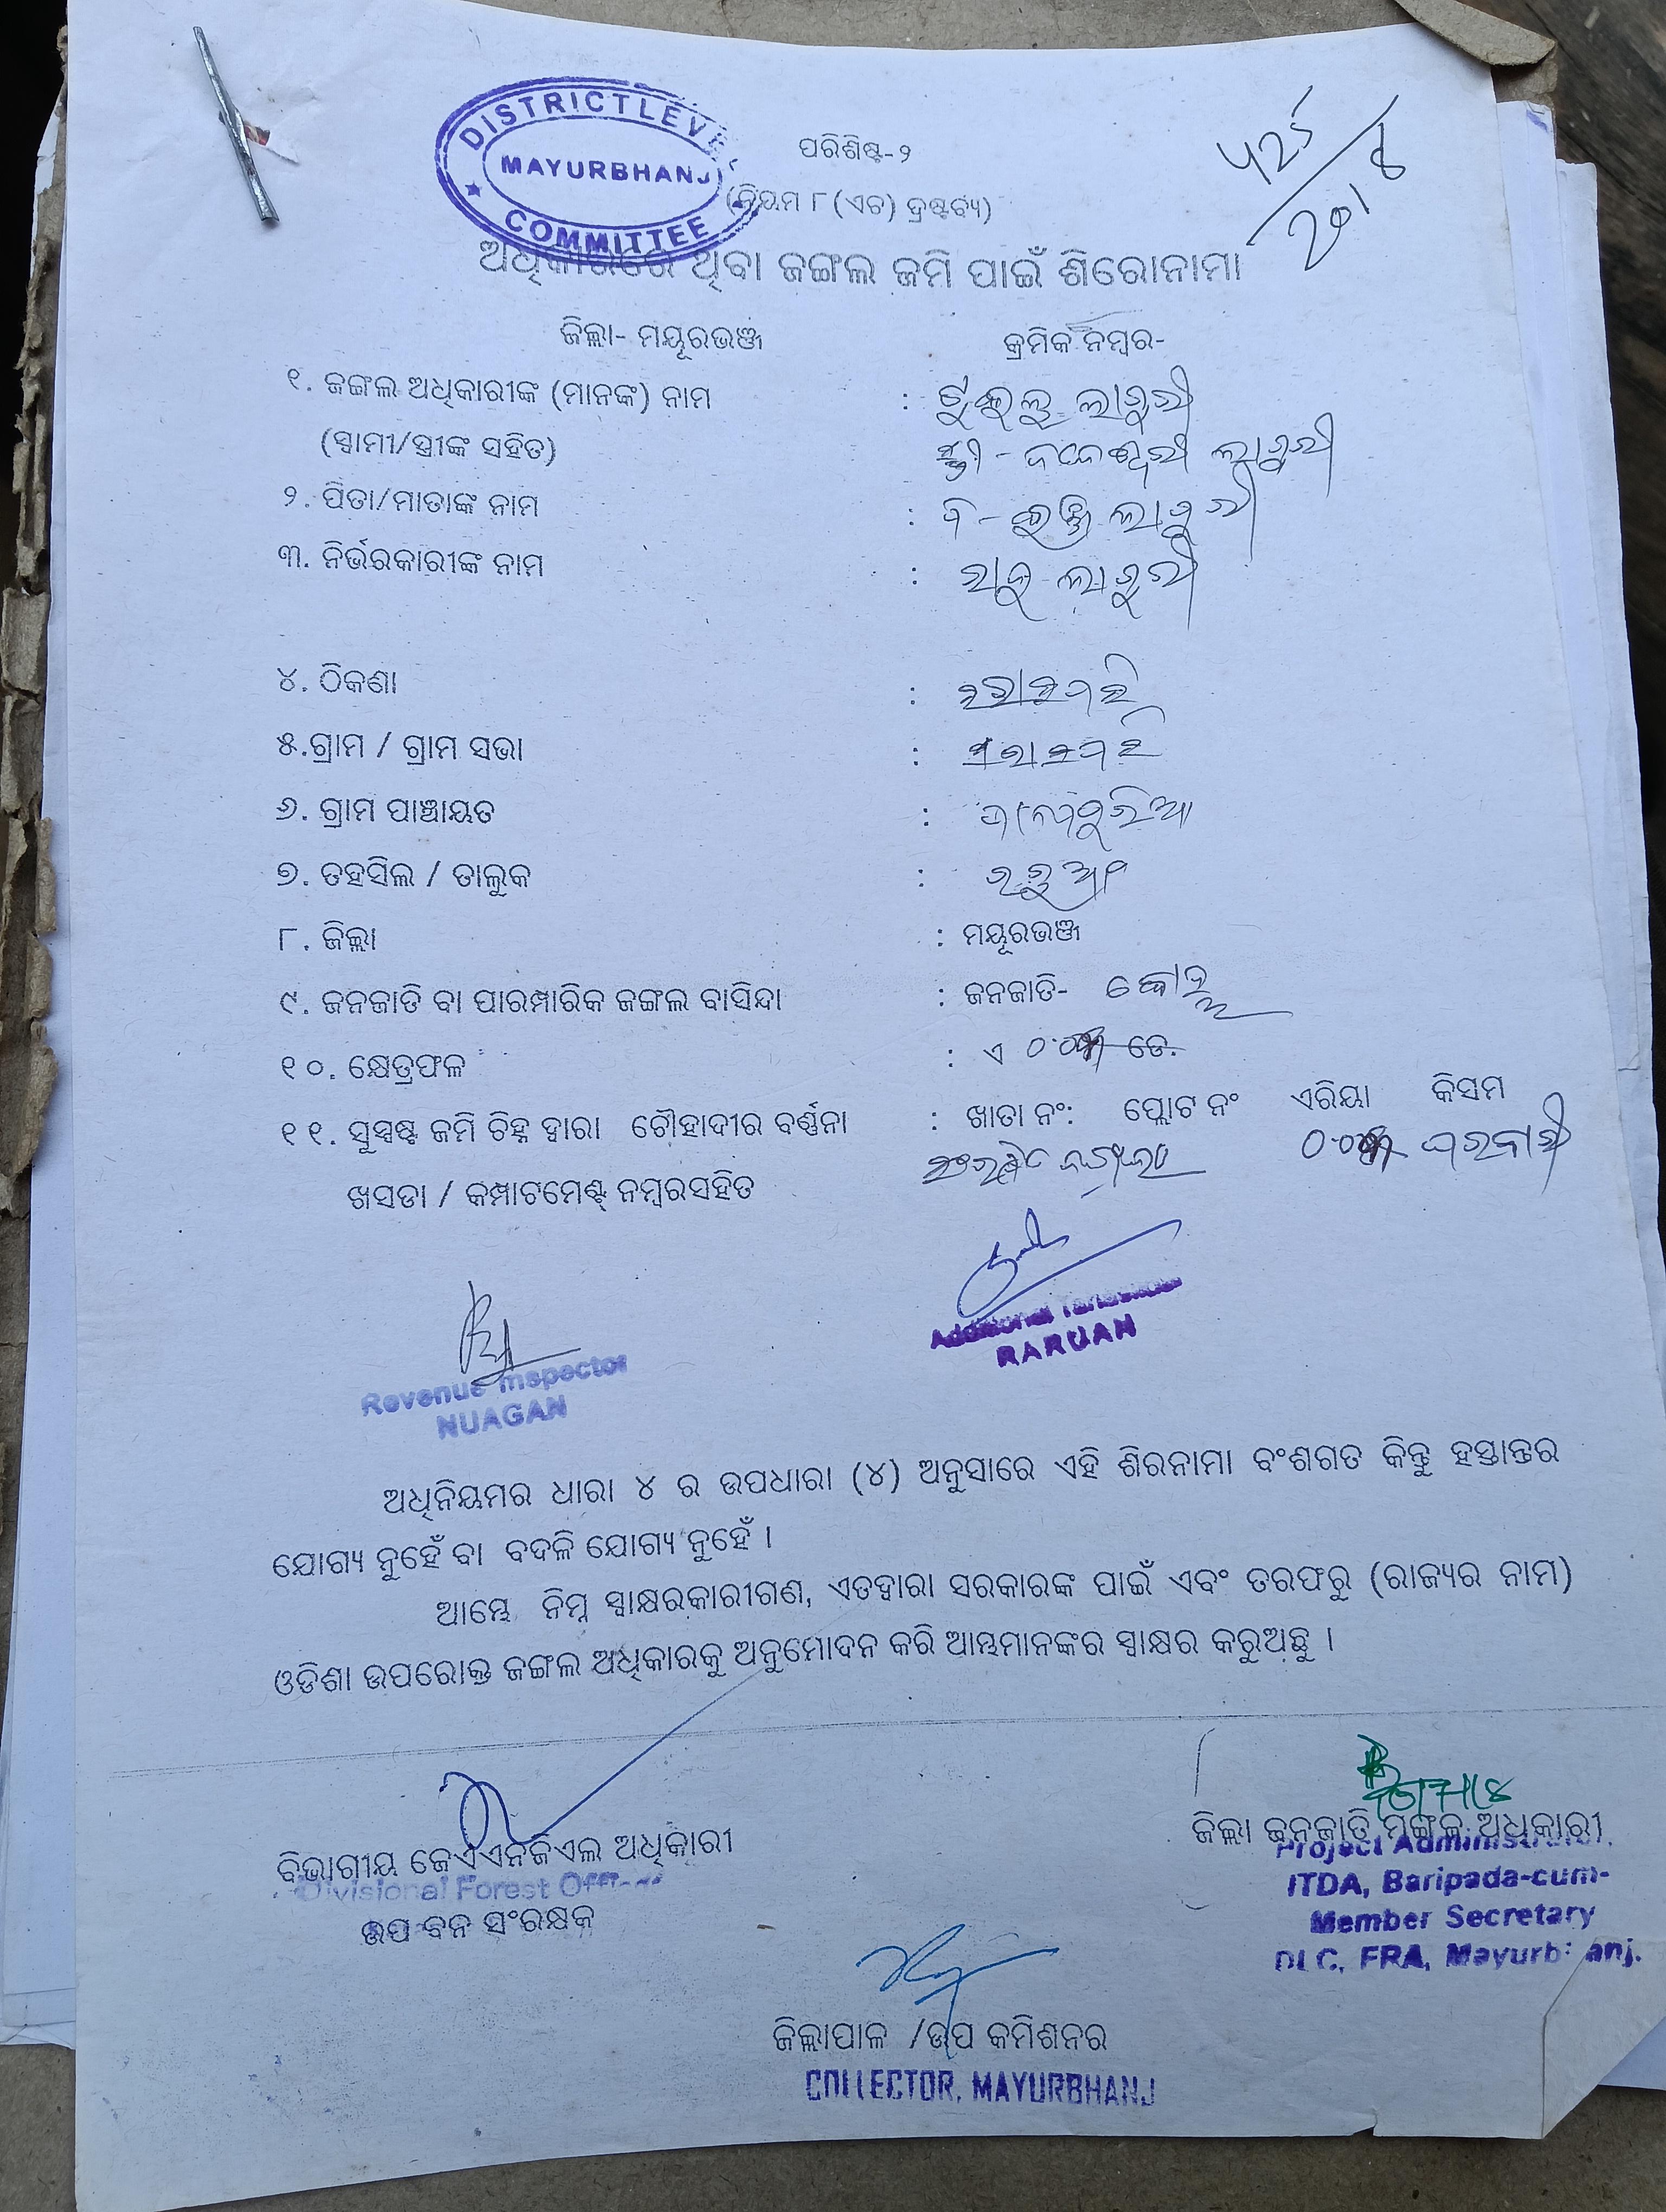 DISTRICT LEVEL
MAYURBHANJ
COMMITTEE
ପରିଶିଷ୍ଟ-୨
(ନିୟମ ୮ (ଏଚ) ଦ୍ରଷ୍ଟବ୍ୟ)
ଅଧିକାରରେ ଥିବା ଜଙ୍ଗଲ ଜମି ପାଇଁ ଶିରୋନାମା
ଜିଲ୍ଲା- ମୟୂରଭଞ୍ଜ କ୍ରମିକ ନମ୍ବର-
୧. ଜଙ୍ଗଲ ଅଧିକାରୀଙ୍କ (ମାନଙ୍କ) ନାମ : ଲାଗୁରୀ
(ସ୍ୱାମୀ/ସ୍ତ୍ରୀଙ୍କ ସହିତ) ସ୍ତ୍ରୀ - ଲାଗୁରୀ
୨. ପିତା/ମାତାଙ୍କ ନାମ : ଲାଗୁରୀ
୩. ନିର୍ଭରକାରୀଙ୍କ ନାମ : ଲାଗୁରୀ
୪. ଠିକଣା :
୫.ଗ୍ରାମ / ଗ୍ରାମ ସଭା :
୬. ଗ୍ରାମ ପାଞ୍ଚାୟତ :
୭. ତହସିଲ / ତାଲୁକ : ରରୁଆଁ
୮. ଜିଲ୍ଲା : ମୟୂରଭଞ୍ଜ
୯. ଜନଜାତି ବା ପାରମ୍ପାରିକ ଜଙ୍ଗଲ ବାସିନ୍ଦା : ଜନଜାତି- କୋହ୍ଲ
୧୦. କ୍ଷେତ୍ରଫଳ : ଏ ଡେ.
୧୧. ସୁସ୍ପଷ୍ଟ ଜମି ଚିହ୍ନ ଦ୍ୱାରା ଚୌହାଦୀର ବର୍ଣ୍ଣନା : ଖାତା ନଂ: ପ୍ଲୋଟ ନଂ ଏରିୟା କିସମ
ଖସଡା / କମ୍ପାଟମେଣ୍ଟ ନମ୍ବରସହିତ ସଂରକ୍ଷିତ ଜଙ୍ଗଲ ଘରବାରି
Additional Tahasildar
RARUAN
Revenue Inspector
NUAGAN
ଅଧିନିୟମର ଧାରା ୪ ର ଉପଧାରା (୪) ଅନୁସାରେ ଏହି ଶିରନାମା ବଂଶଗତ କିନ୍ତୁ ହସ୍ତାନ୍ତର
ଯୋଗ୍ୟ ନୁହେଁ ବା ବଦଳି ଯୋଗ୍ୟ ନୁହେଁ ।
ଆମ୍ଭେ ନିମ୍ନ ସ୍ୱାକ୍ଷରକାରୀଗଣ, ଏତଦ୍ୱାରା ସରକାରଙ୍କ ପାଇଁ ଏବଂ ତରଫରୁ (ରାଜ୍ୟର ନାମ)
ଓଡିଶା ଉପରୋକ୍ତ ଜଙ୍ଗଲ ଅଧିକାରକୁ ଅନୁମୋଦନ କରି ଆମ୍ଭମାନଙ୍କର ସ୍ୱାକ୍ଷର କରୁଅଛୁ ।
ଜିଲ୍ଲା ଜନଜାତି ମଙ୍ଗଳ ଅଧିକାରୀ
Project Administrator,
ITDA, Baripada-cum-
Member Secretary
DLC, FRA, Mayurbhanj.
ବିଭାଗୀୟ ଜେଏଏନଜିଏଲ ଅଧିକାରୀ
Divisional Forest Officer
ଉପ ବନ ସଂରକ୍ଷକ
ଜିଲ୍ଲାପାଳ /ଉପ କମିଶନର
COLLECTOR, MAYURBHANJ